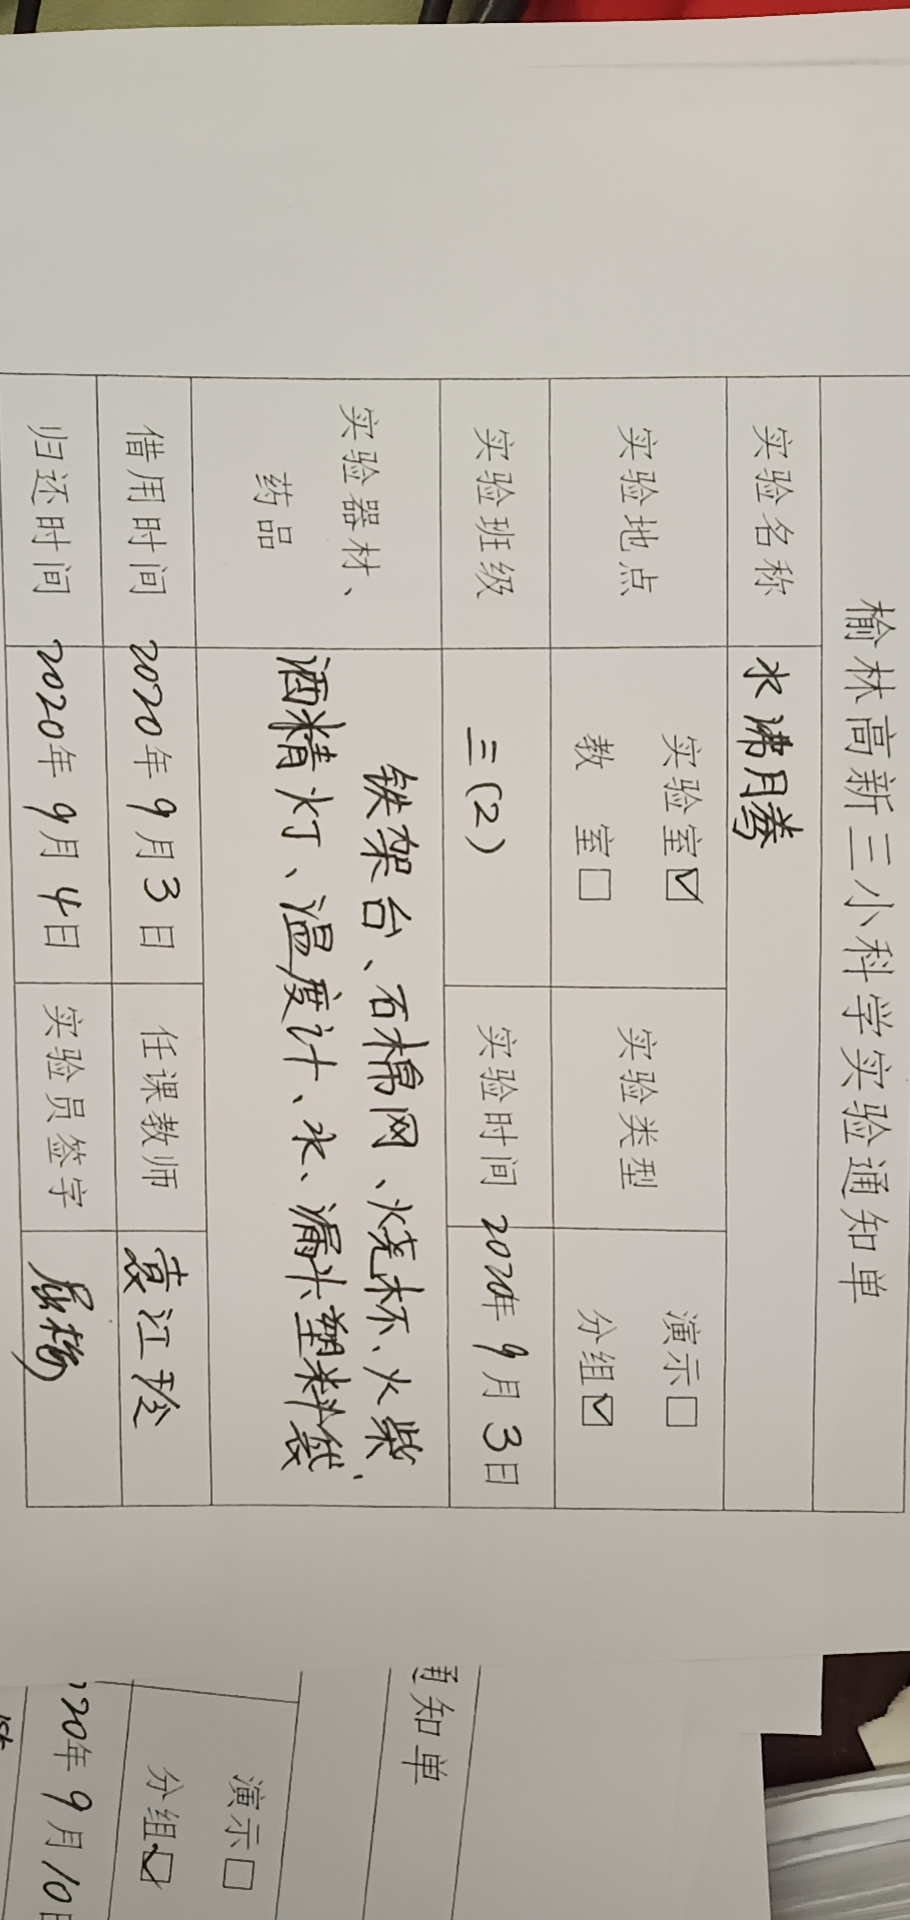 榆林高新三小科学实验通知单
实验名称 水沸腾
实验地点 实验室☑ 教 室□ 实验类型 演示□ 分组☑
实验班级 三(2) 实验时间 2020年9月3日
实验器材、药品
铁架台、石棉网、烧杯、火柴、
酒精灯、温度计、水、漏斗塑料袋
借用时间 2020年9月3日 任课教师 袁江玲
归还时间 2020年9月4日 实验员签字
通知单
演示□
分组☑
20年9月10日